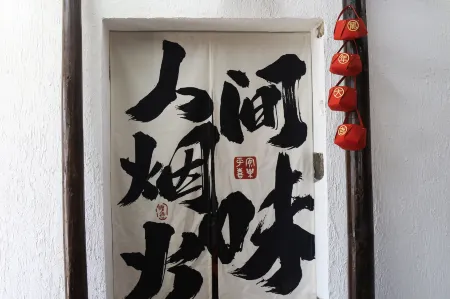 人间
烟
火味